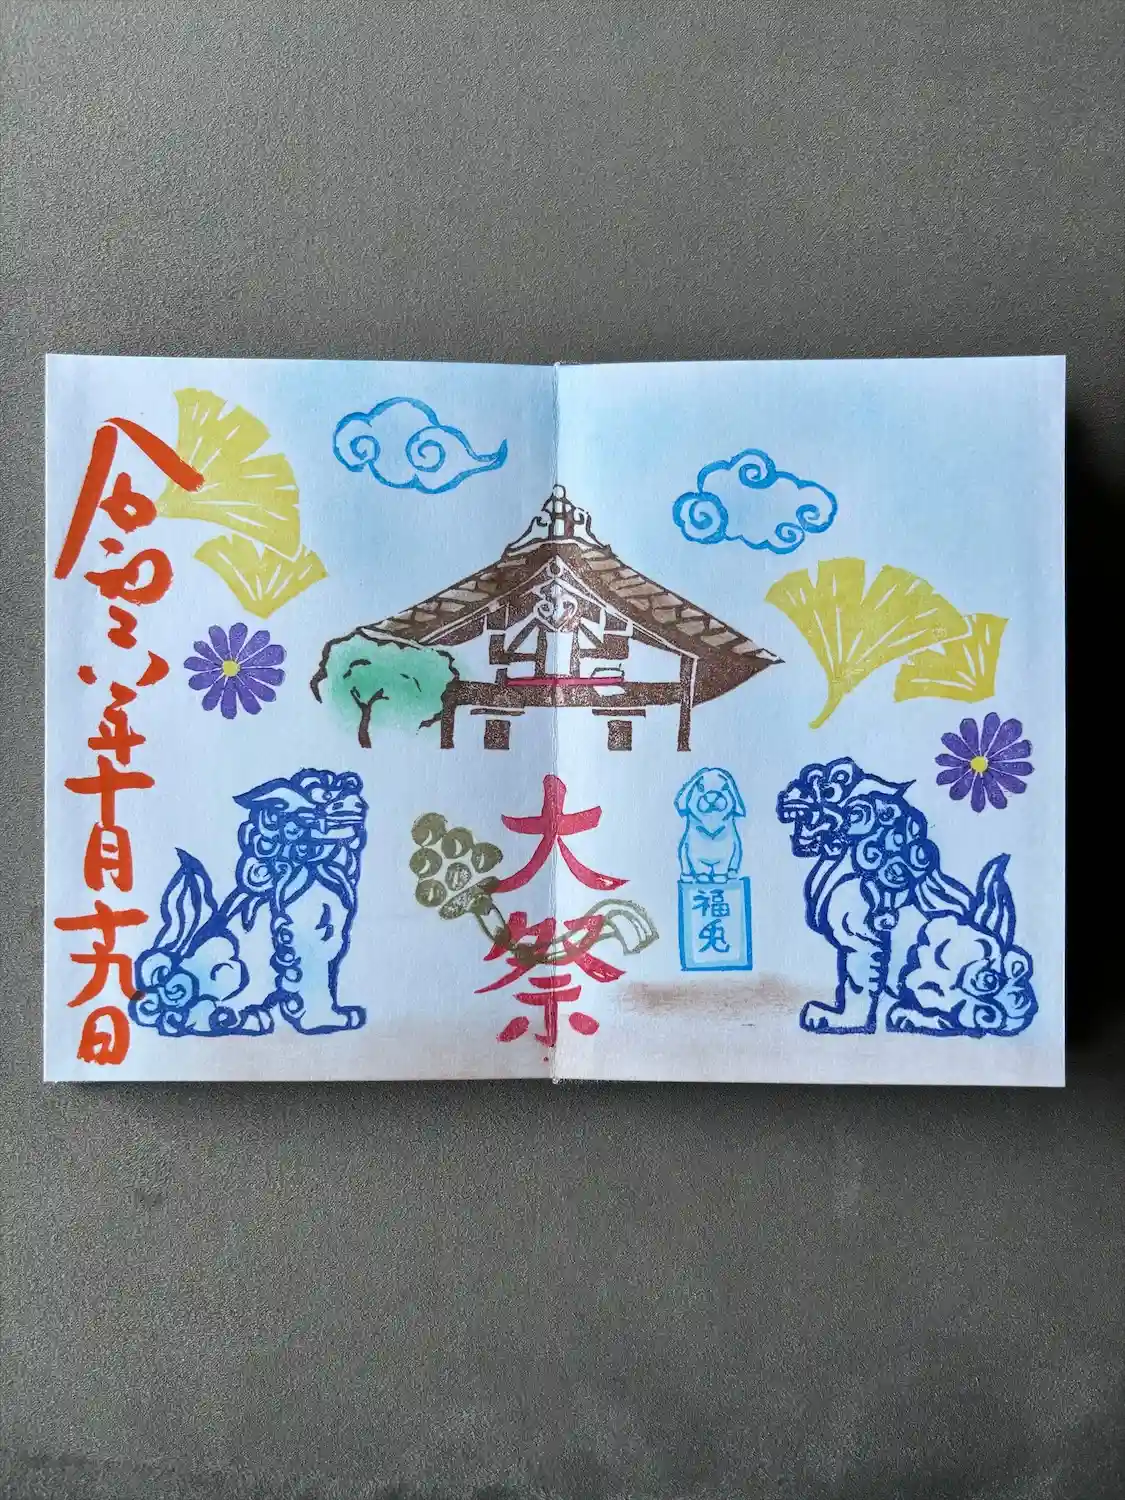 大祭
福兎
令和六年十月十九日